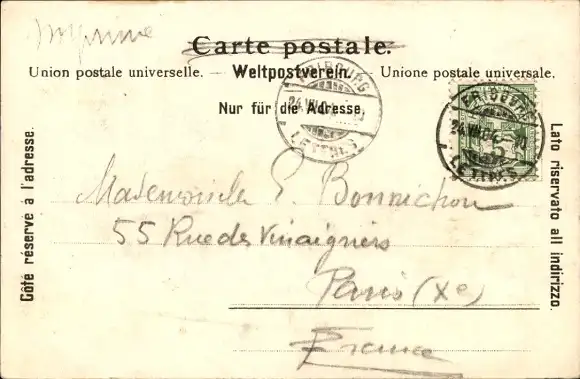 Imprimé
Carte postale.
Union postale universelle. — Weltpostverein. — Unione postale universale.
Nur für die Adresse.
FRIBOURG
24.VII.04
LETTRES
FRIBOURG
24.VII.04
LETTRES
5
Côté réservé à l'adresse.
Lato riservato all indirizzo.
Mademoiselle E. Bonnichon
55 Rue des Vinaigriers
Paris (Xe)
France